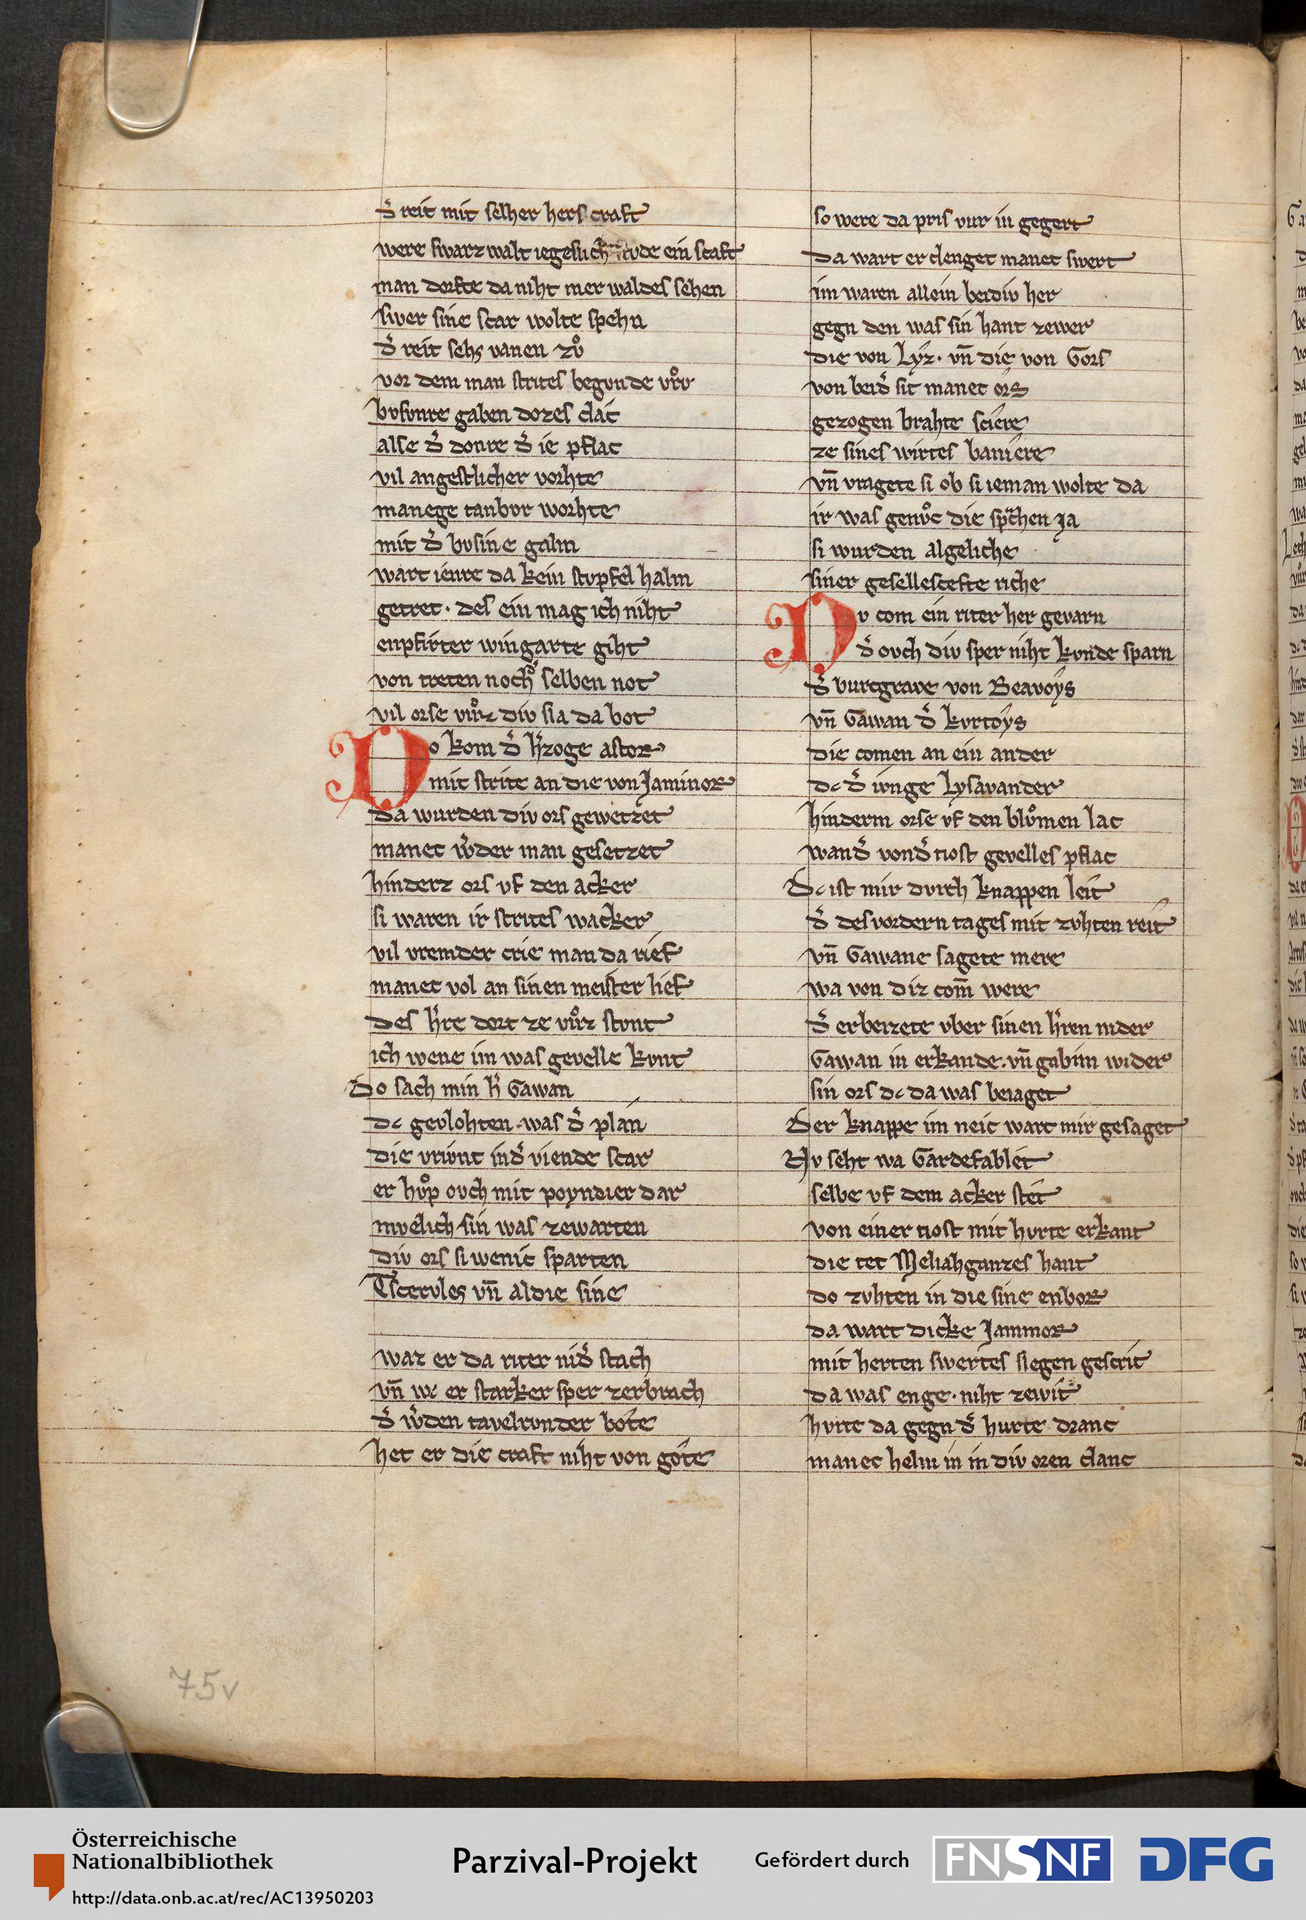 d̾ reit mit selher hers craft
were swarz walt iegeslich stvde ein scaft
man dorfte da niht mer waldes sehen
swer sine scar wolte spehn
d̾ reit sehs vanen zvͦ
vor dem man strites begvnde vrͦv
bvsvnre gaben dozes clac
alse d̾ donre d̾ ie pflac
vil angestlicher vorhte
manege tanbvr worhte
mit d̾ bvsine galm
wart ienre da kein stvpfel halm
getret · des ein mag ich niht
enpfirter wingarte giht
von treten noch d̾ selben not
vil orse vurͦz div sla da bot
Do kom d̾ h̾zoge astor
mit strite an die von Jaminor
da wurden div ors gewetzet
manec w̾der man gesetzet
hinderz ors vf den acker
si waren ir strites wacker
vil vremder crie man da rief
manec vol an sinen meister lief
Des h̾re dort ze vuͦz stvnt
ich wene im was gevelle kvnt
Do sach min h̾ Gawan
dc gevlohten was d̾ plan
die vrivnt in d̾ viende scar
er hvͦp ovch mit poyndier dar
mvelich sin was zewarten
div ors si wenic sparten
Tscervles vn̄ al die sine
waz er da riter nid̾ stach
vn̄ wc er starker sper zerbrach
d̾ w̾den tavelrvnder bote
het er die craft niht von gote
so were da pris vur in gegert
da wart er clenget manec swert
im waren allein beidiv her
gegn den was sin hant zewer
die von Lyz · vn̄ die von Gors
von beid̾ sit manec ors
gezogen brahte sciere
ze sines wirtes baniere
vn̄ vragete si ob si ieman wolte da
ir was genvͦc die sp̾chen ja
si wurden algeliche
siner gesellescefte riche
Dv com ein riter her gevarn
d̾ ovch div sper niht kvnde sparn
d̾ burcgrave von Beavoys
vn̄ Gawan d̾ kvrtoys
die comen an ein ander
dc d̾ ivnge Lysavander
hinderm orse vf den blvͦmen lac
wand̾ von d̾ tiost gevelles pflac
Dc ist mir dvrch knappen leit
d̾ des vordern tages mit zvhten reit
vn̄ Gawane sagete mere
wa von diz com̄ were
d̾ erbeizete vber sinen h̾ren nider
Gawan in erkande · vn̄ gab im wider
sin ors dc da was beiaget
Der knappe im neic wart mir gesaget
Nv seht wa Gardefablet
selbe vf dem acker stet
von einer tiost mit hvrte erkant
die tet Meliahganzes hant
do zvhten in die sine enbor
da wart dicke Jammor
mit herten swertes slegen gescrit
da was enge · niht zewit
hvrte da gegn d̾ hurte dranc
manec helm in in div oren clanc
75v
Österreichische
Nationalbibliothek
http://data.onb.ac.at/rec/AC13950203
Parzival-Projekt
Gefördert durch
FNSNF
DFG